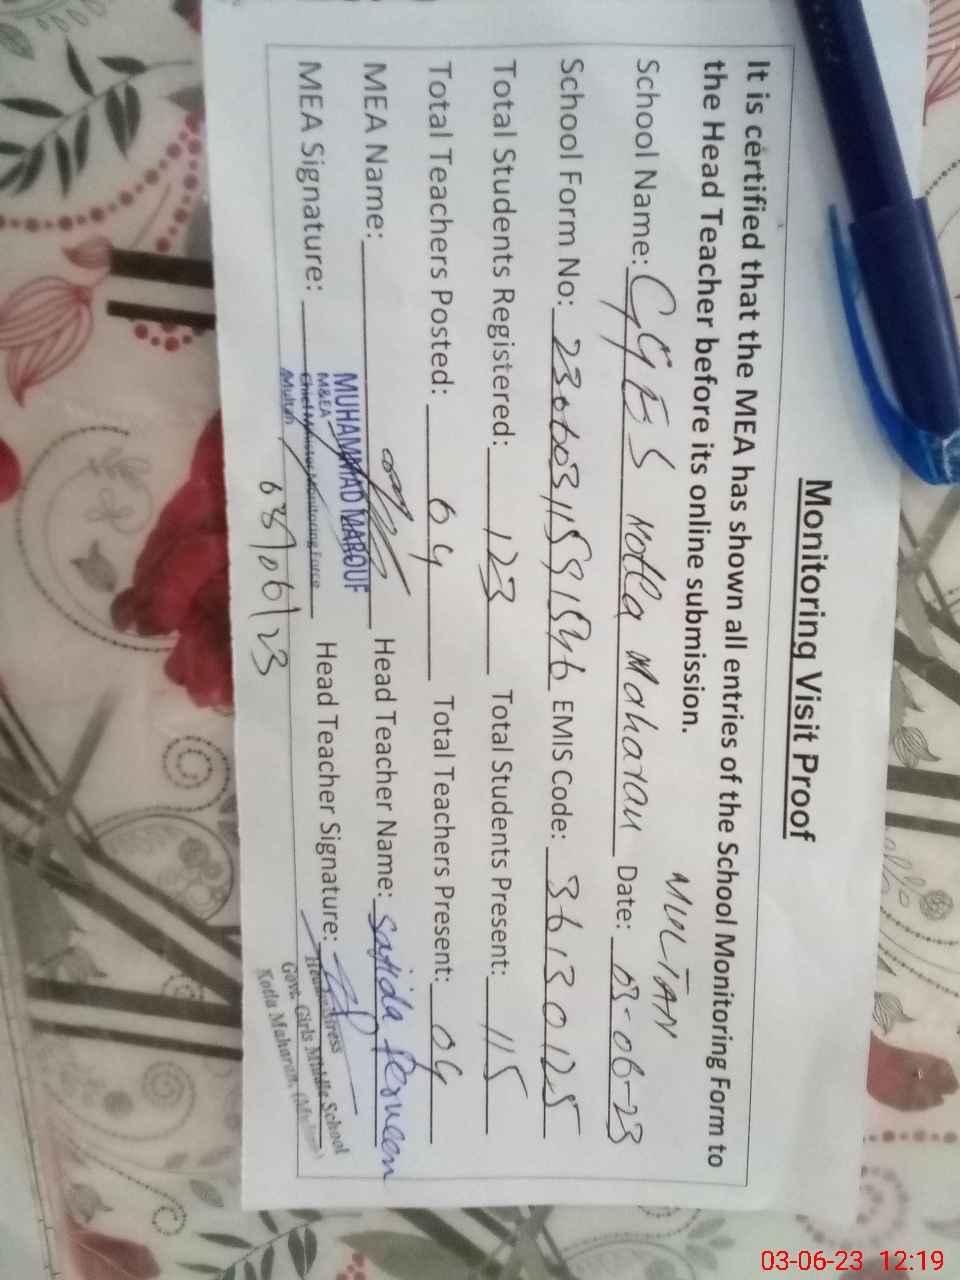 Monitoring Visit Proof
It is certified that the MEA has shown all entries of the School Monitoring Form to
the Head Teacher before its online submission.
MULTAN
School Name: GGES Kotla Maharan Date: 03-06-23
School Form No: EMIS Code: 36130125
Total Students Registered: 123 Total Students Present: 115
Total Teachers Posted: 04 Total Teachers Present: 04
MEA Name: Head Teacher Name: Sajida Perveen
MUHAMMAD MAROUF
M&EA
Chief Minister Monitoring Force
Multan
MEA Signature: Head Teacher Signature:
Headmistress
Govt. Girls Middle School
Kotla Maharan,
03/06/23
03-06-23 12:19